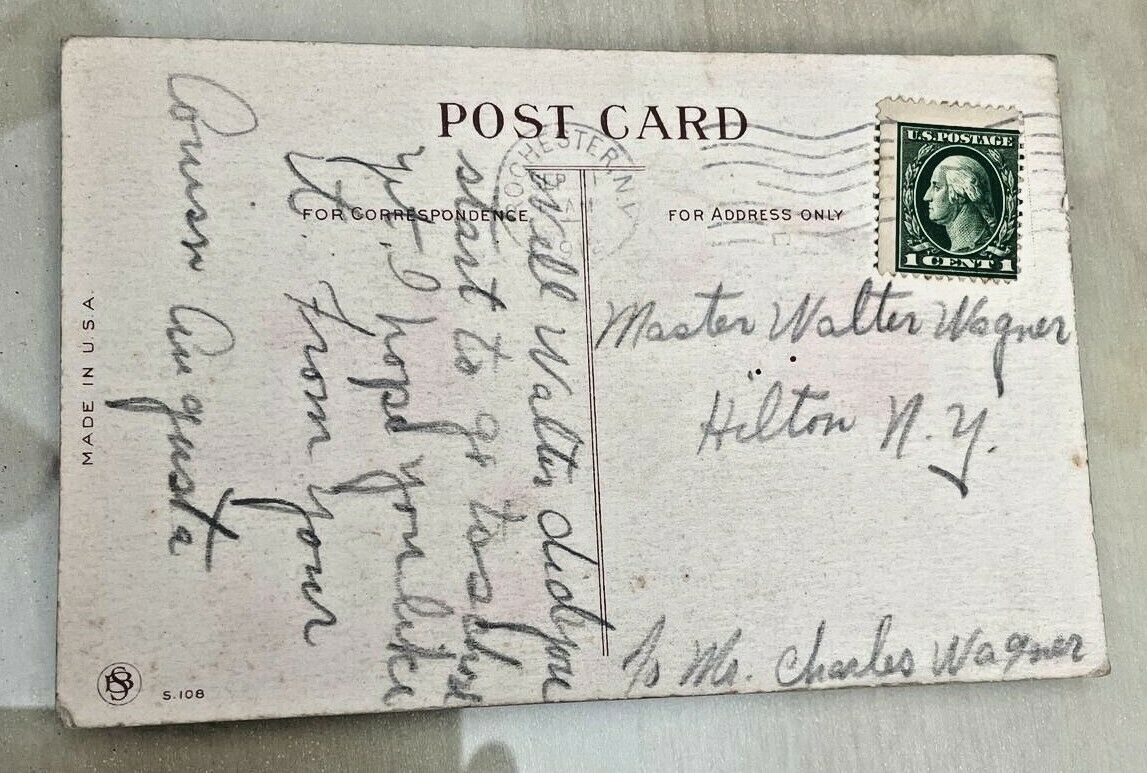 POST CARD
FOR CORRESPONDENCE
FOR ADDRESS ONLY
ROCHESTER, N.Y.
U.S. POSTAGE
1 CENT 1
Well Walter did you
start to go to school
yet. I hope you like
it. From your
Cousin Augusta
Master Walter Wagner
Hilton N.Y.
c/o Mr. Charles Wagner
MADE IN U.S.A.
S. 108